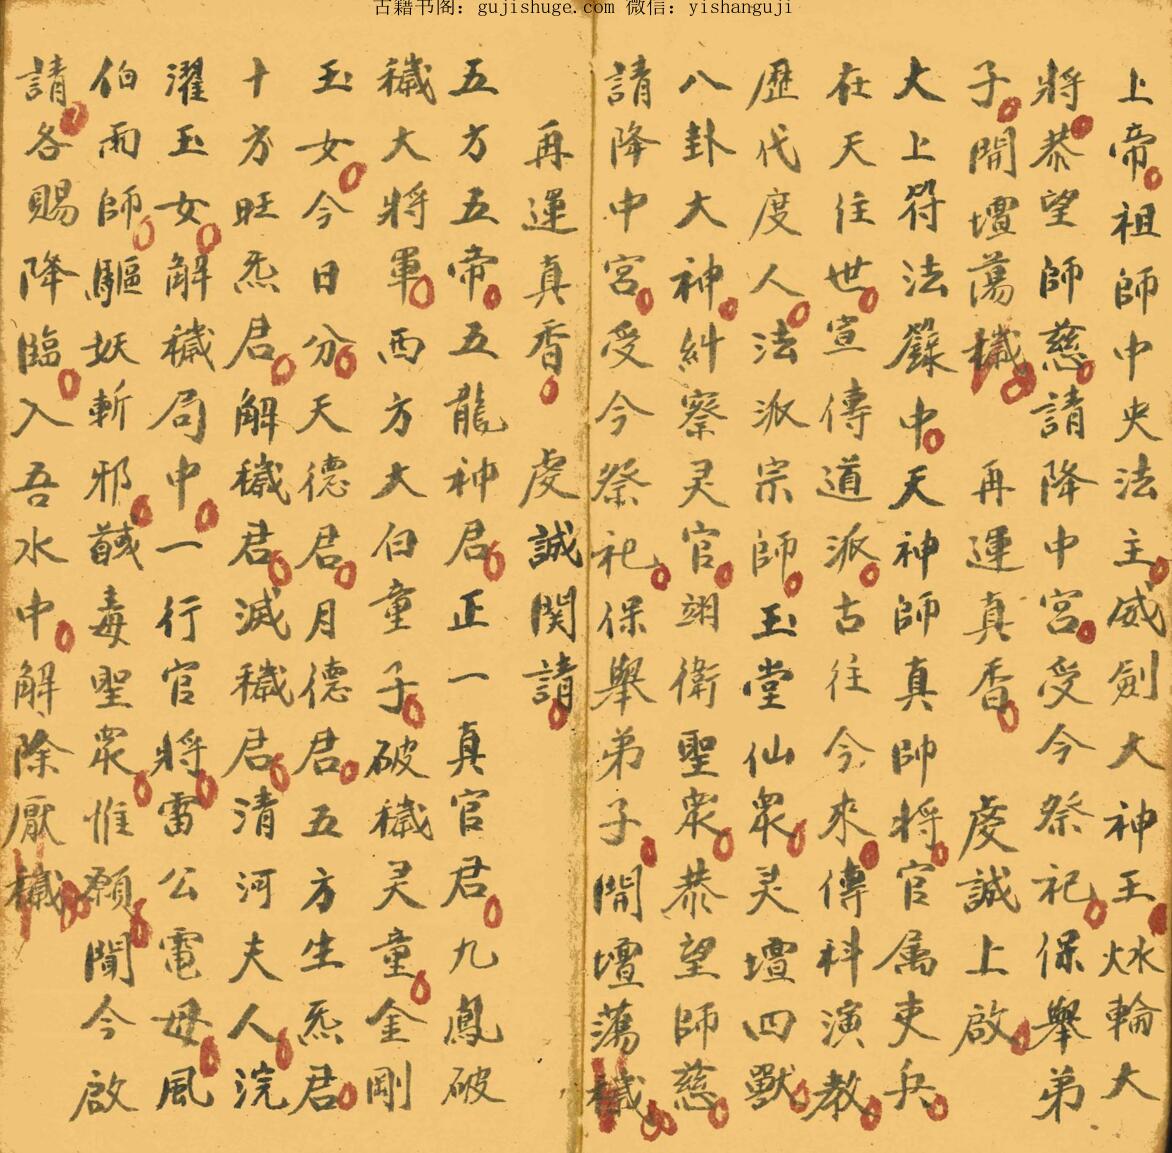 古籍书阁：gujishuge.com 微信：yishanguji
上帝祖師中央法主威劍大神王火水輪大
將恭望師慈請降中宮受今祭祀保舉弟
子開壇蕩穢 再運真香 虔誠上啟
大上符法籙中天神師真帥將官属吏兵
在天住世宣傳道派古往今來傳科演教
歷代度人法派宗師玉堂仙眾灵壇四獸
八卦大神糾察灵官翊衛聖眾恭望師慈
請降中宮受今祭祀保舉弟子開壇蕩穢
再運真香 虔誠関請
五方五帝五龍神君正一真官君九鳳破
穢大將軍西方大白童子破穢灵童金剛
玉女今日分天德君月德君五方生炁君
十方旺炁君解穢君滅穢君清河夫人浣
濯玉女解穢局中一行官將雷公電母風
伯雨師驅妖斬邪馘毒聖眾惟願聞今啟
請各賜降臨入吾水中解除厭穢